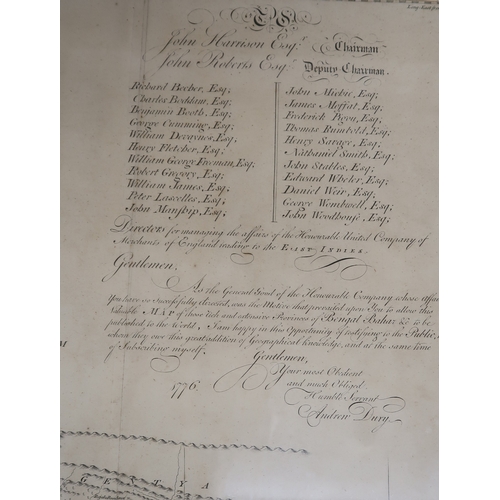 To
John Harrison Esq.r Chairman
John Roberts Esq.r Deputy Chairman.
Richard Becher, Esq;
Charles Boddam, Esq;
Benjamin Booth, Esq;
George Cumming, Esq;
William Devaynes, Esq;
Henry Fletcher, Esq;
William George Freeman, Esq;
Robert Gregory, Esq;
William James, Esq;
Peter Lascelles, Esq;
John Manship, Esq;
John Michie, Esq;
James Moffat, Esq;
Frederick Pigou, Esq;
Thomas Rumbold, Esq;
Henry Savage, Esq;
Nathaniel Smith, Esq;
John Stables, Esq;
Edward Wheler, Esq;
Daniel Weir, Esq;
George Wombwell, Esq;
John Woodhouse, Esq;
Directors for managing the affairs of the Honourable United Company of
Merchants of England trading to the EAST INDIES.
Gentlemen,
As the General Good of the Honourable Company whose Affairs
You have so succesfully directed, was the Motive that prevailed upon You to allow this
Valuable MAP of those rich and extensive Provinces of Bengal Bahar &c. to be
published to the World, I am happy in this Opportunity of testifying to the Public,
whom they owe this great addition of Geographical knowledge, and at the same time
of Subscribing myself,
Gentlemen,
Your most Obedient
and much Obliged
Humble Servant
Andrew Dury.
1776.
M
G E N T Y A